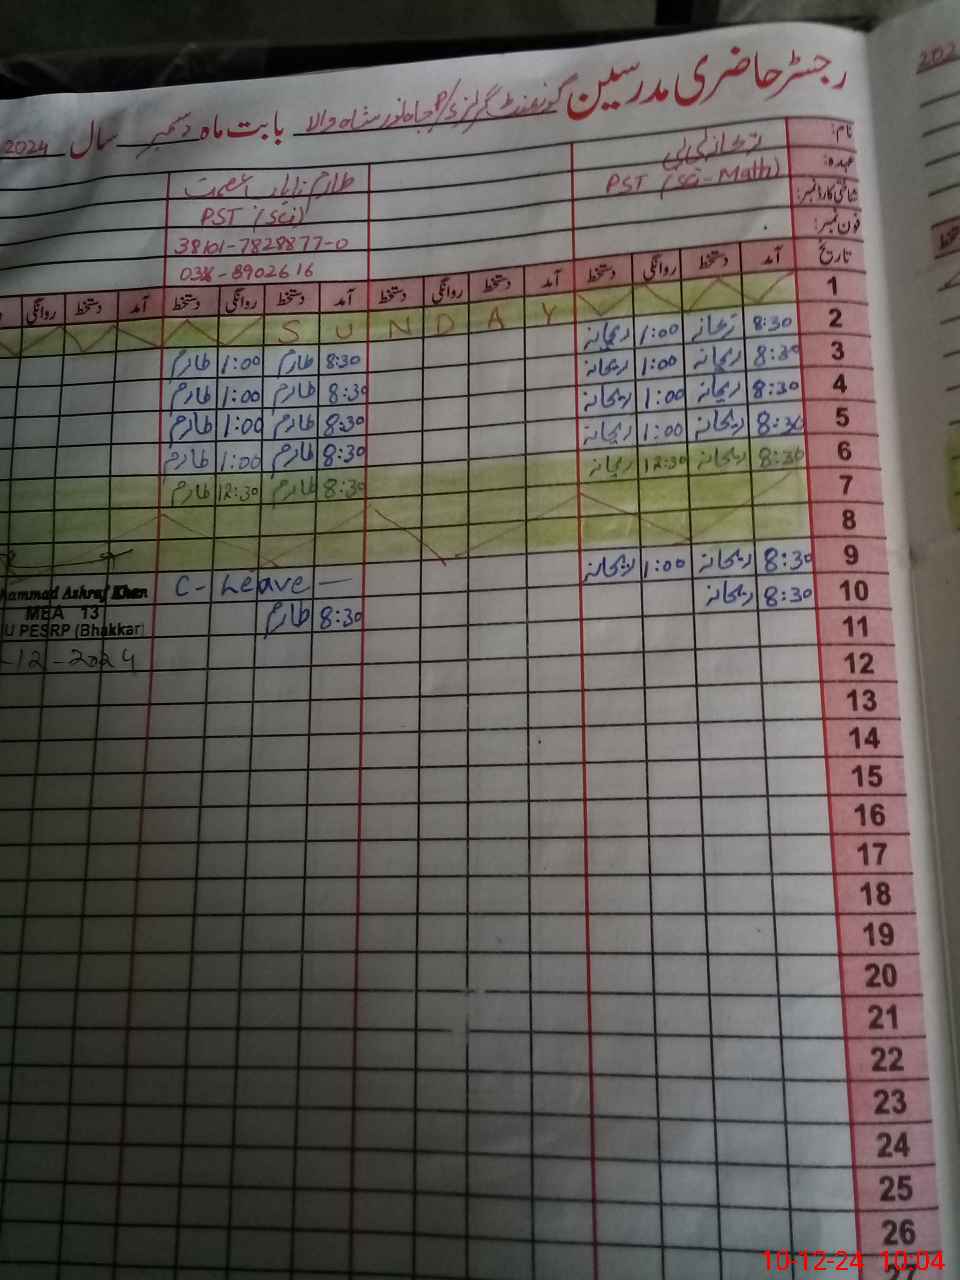 رجسٹر حاضری مدرسین گورنمنٹ گرلز بابت ماہ دسمبر سال 2024
نام:
عہدہ: PST (Sci-Math)
PST (Sci)
شناختی کارڈ نمبر:
38101-7828877-0
فون نمبر:
تاریخ آمد دستخط روانگی دستخط آمد دستخط روانگی دستخط آمد دستخط روانگی دستخط آمد دستخط روانگی
1 SUNDAY
2 8:30 ریحانہ 1:00 ریحانہ 8:30 1:00
3 8:30 ریحانہ 1:00 ریحانہ 8:30 1:00
4 8:30 ریحانہ 1:00 ریحانہ 8:30 1:00
5 8:30 ریحانہ 1:00 ریحانہ 8:30 1:00
6 8:30 ریحانہ 12:30 ریحانہ 8:30 12:30
7
8
9 8:30 ریحانہ 1:00 ریحانہ C-Leave —
10 8:30 ریحانہ 8:30
11
12
13
14
15
16
17
18
19
20
21
22
23
24
25
26
27
hammad Ashraf Khan
MEA 13
U PESRP (Bhakkar)
-12-2024
202
10-12-24 10:04